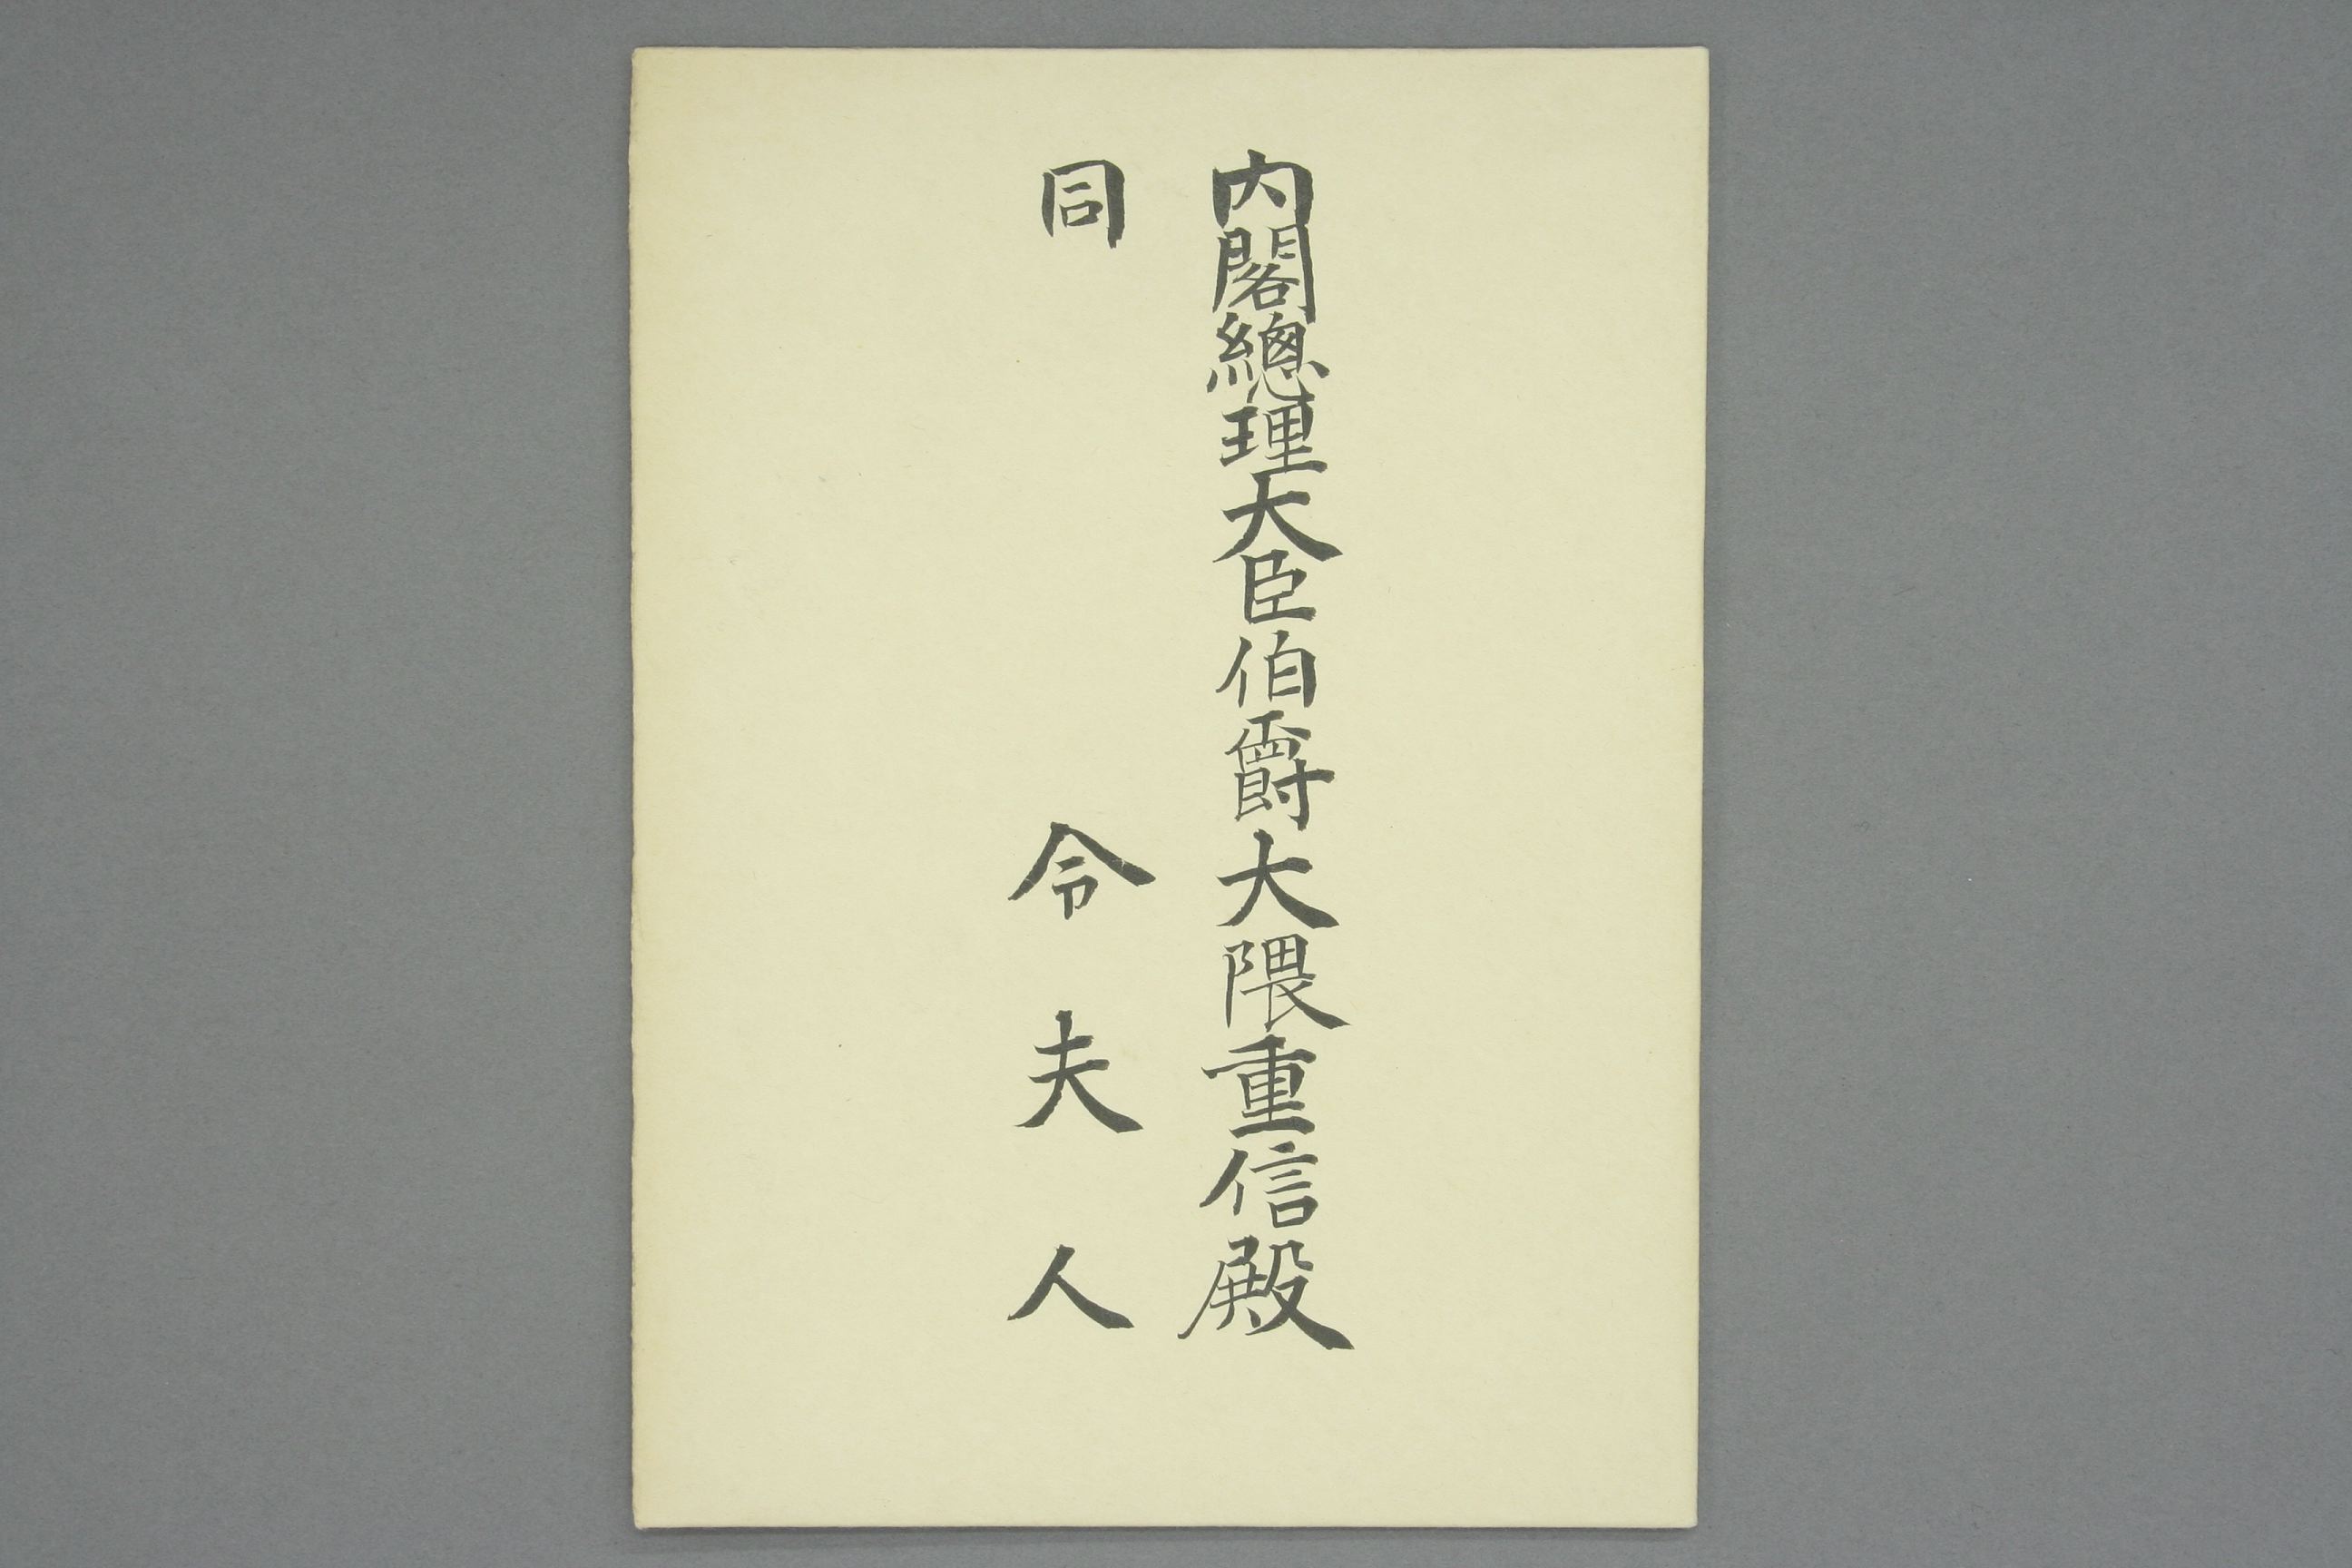 内閣總理大臣伯爵大隈重信殿
同 令夫人